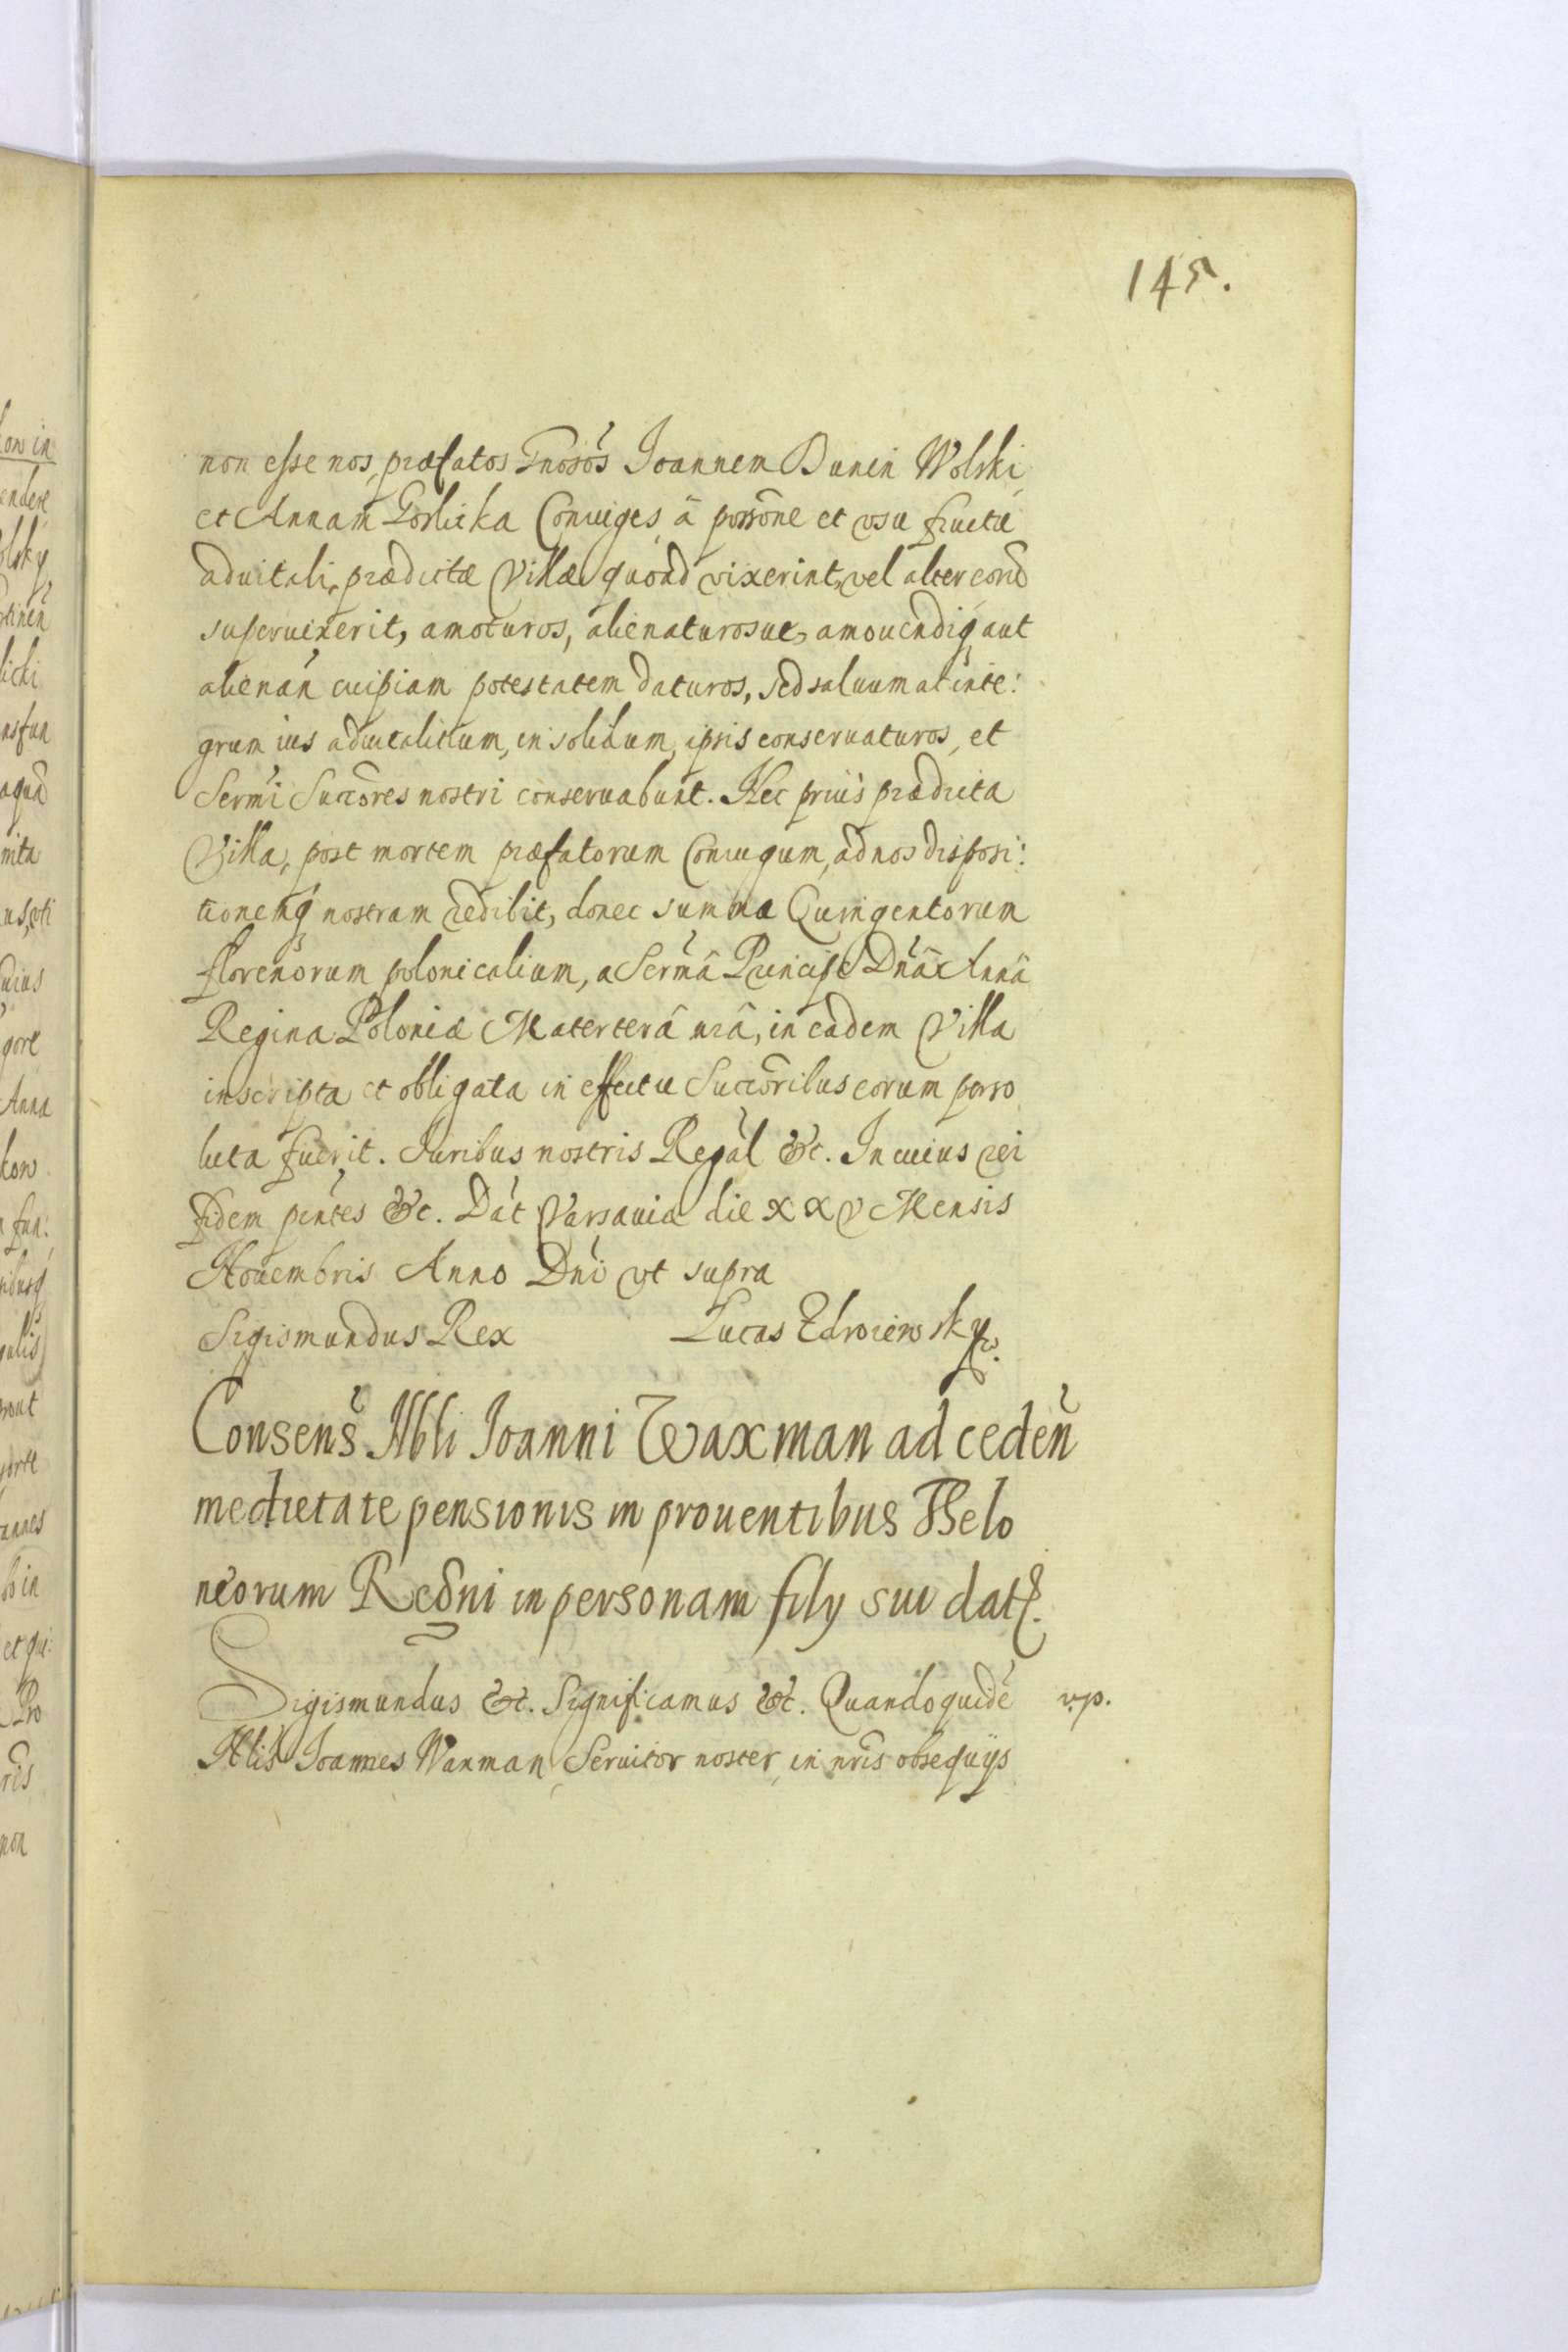 145.
non esse nos, præfatos Gnosos Joannem Dunin Wolski
et Annam Gorlicka Coniuges, â possone et vsu fructu
aduitali, prædictæ Villæ, quoad vixerint, vel alter eoru
superuixerit, amoturos, alienaturosue, amouendiq, aut
alienan cuipiam potestatem daturos, sed saluum at inte:
grum ius aduitalitium, in solidum, ipsis conseruaturos, et
Sermi Succores nostri conseruabunt. Nec prius prædicta
Villa, post mortem præfatorum Coniugum, ad nos disposi:
tionemq nostram redibit, donec summa Quingentorum
florenorum polonicalium, a Sermâ Principe Dnâ Annâ
Regina Poloniæ Materterâ nrâ, in eadem Villa
inscripta et obligata in effectu Succoribus eorum perso
luta fuerit. Juribus nostris Regal &c. In cuius rei
fidem pntes &c. Dat Varsauiæ die xxv Mensis
Nouembris Anno Dni vt supra
Sigismundus Rex Lucas Zdroiewsky
Consens Nbli Joanni Waxman ad ceden
medietate pensionis in prouentibus Thelo
neorum Regni in personam fily sui dat.
Sigismundus &c. Significamus &c. Quandoquide
Nblis Joannes Waxman, Seruitor noster, in nris obsequijs